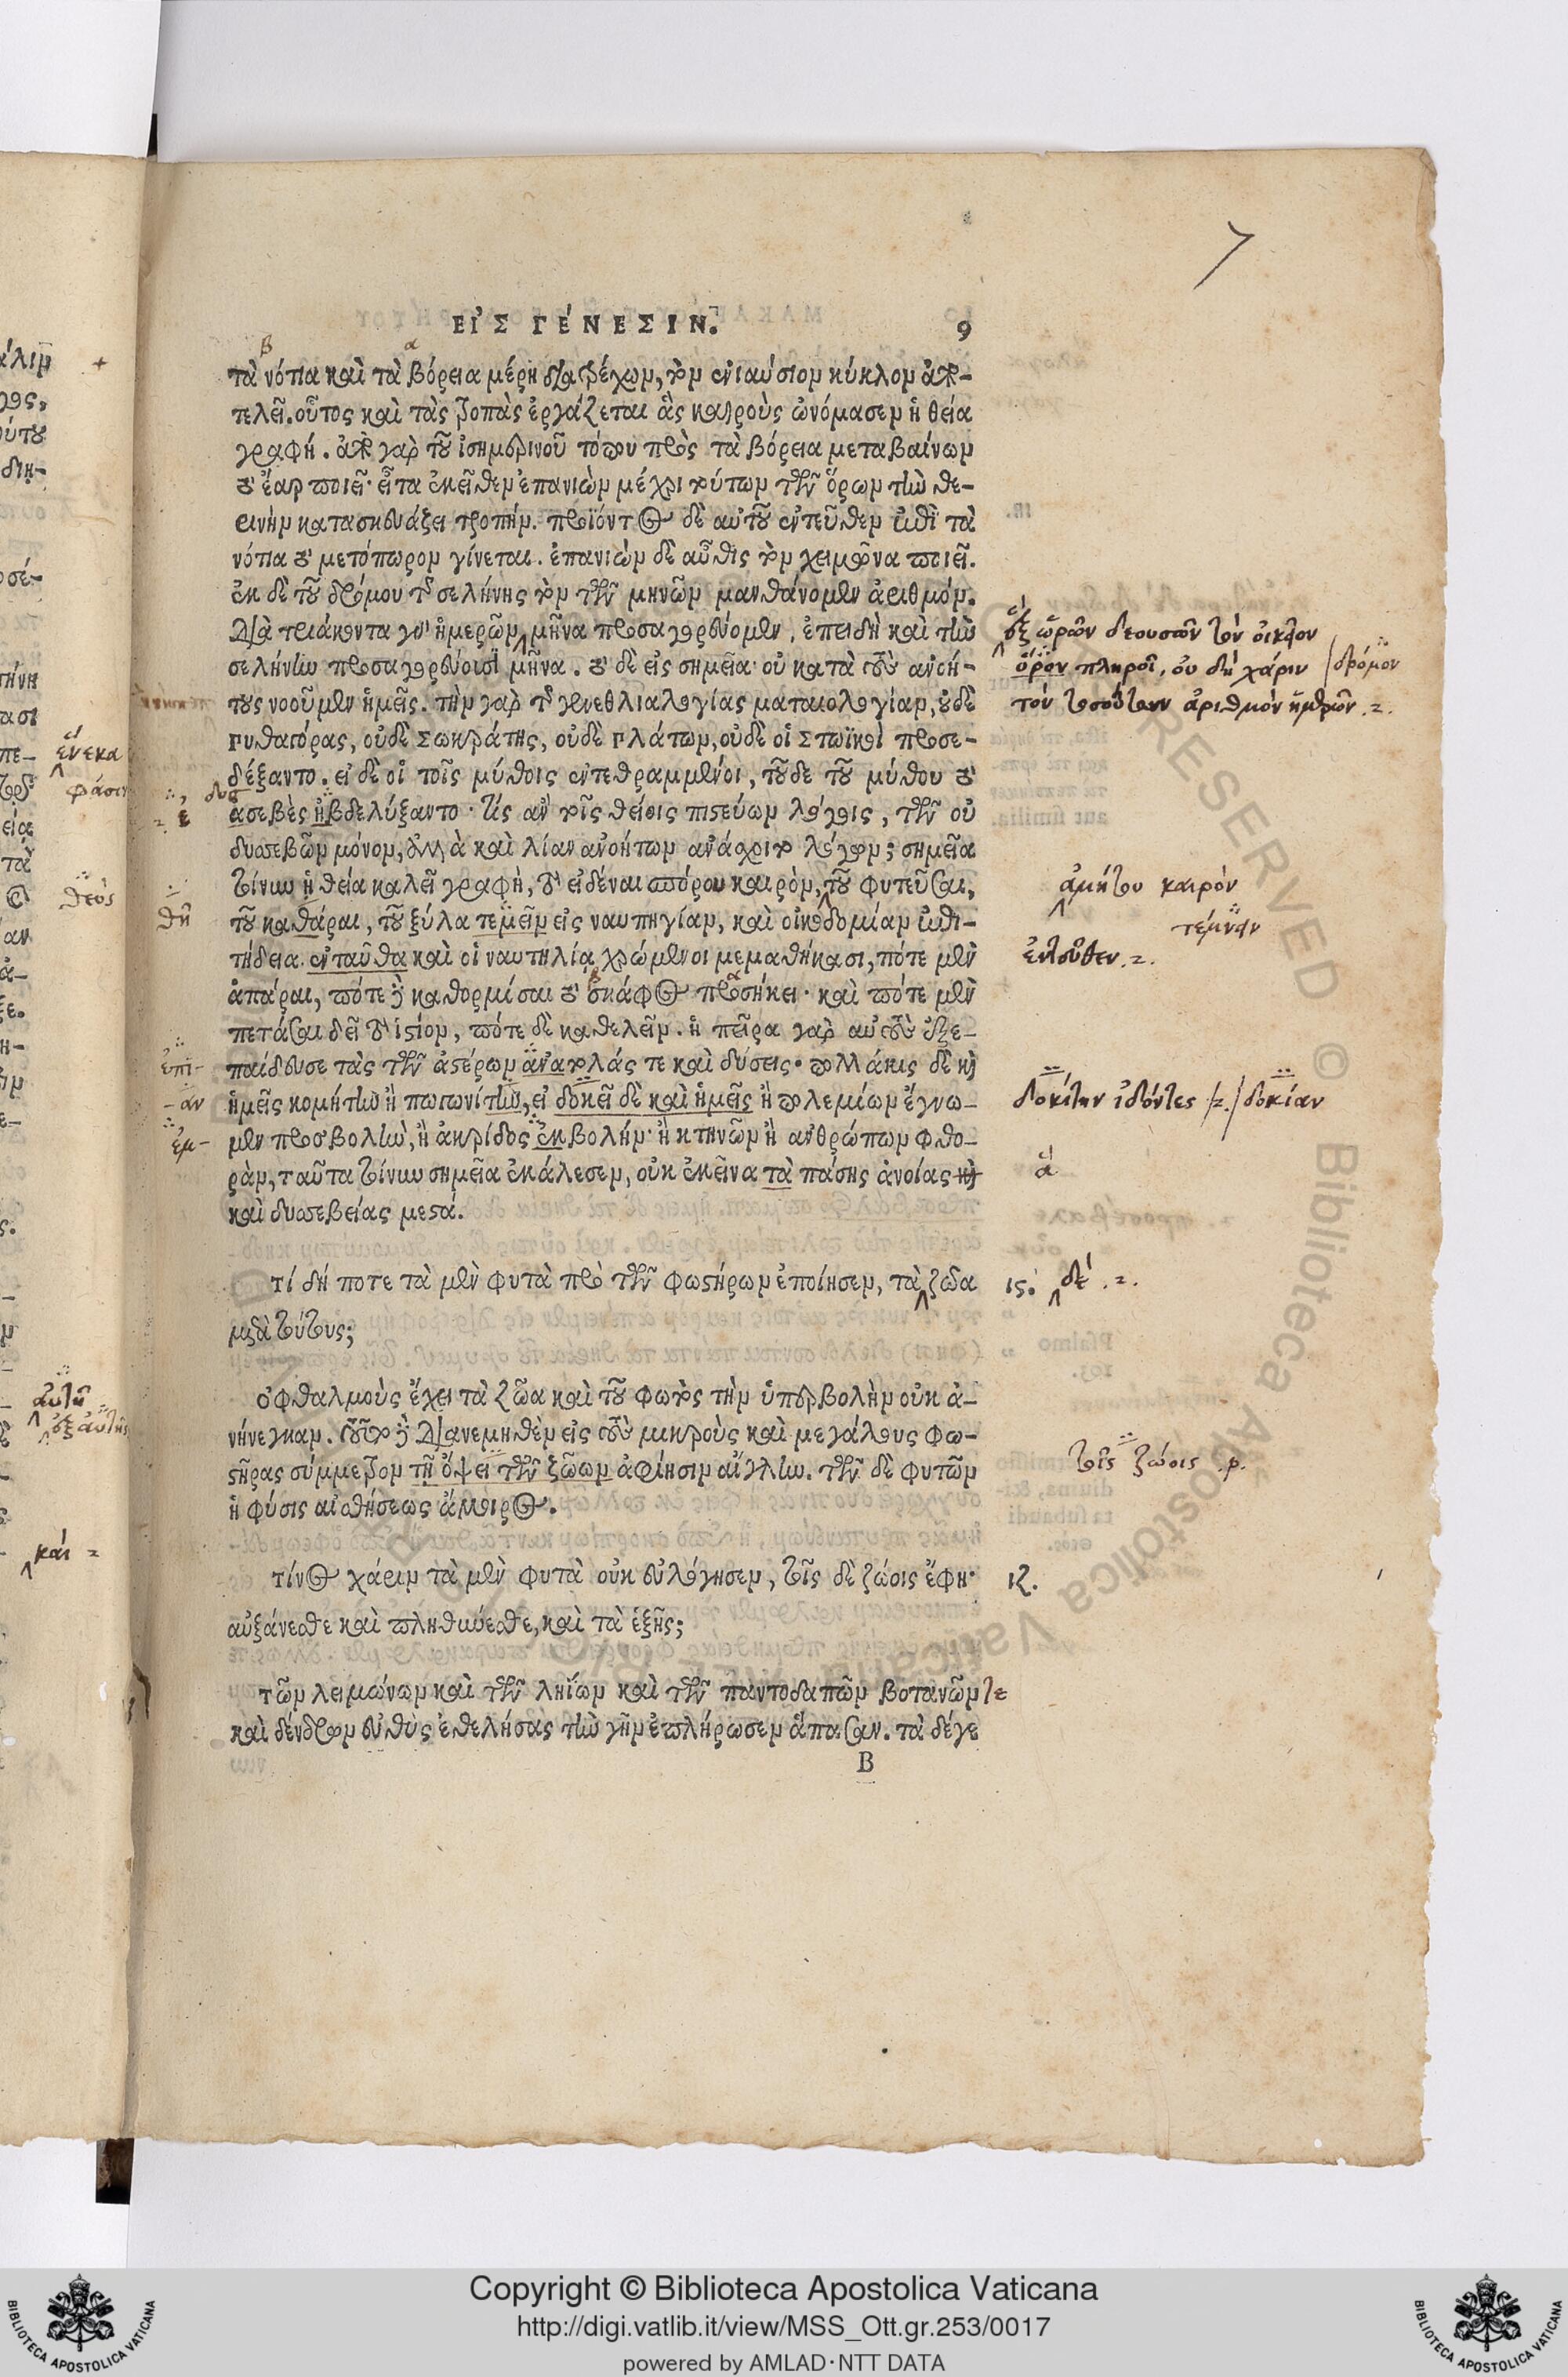 7
ΕΙ᾿Σ ΓΕ´ΝΕΣΙΝ. 9
β α
τὰ νότια καὶ τὰ βόρεια μέρη διατρέχων, τὸν ἐνιαύσιον κύκλον ἀπο-
τελεῖ. οὗτος καὶ τὰς τροπὰς ἐργάζεται ἃς καιροὺς ὠνόμασεν ἡ θεία
γραφή. ἀπὸ γὰρ τοῦ ἰσημερινοῦ τόπου πρὸς τὰ βόρεια μεταβαίνων
τὸ ἔαρ ποιεῖ· εἶτα ἐκεῖθεν ἐπανιὼν μέχρι τούτων τῶν ὅρων τὴν θε-
ρινὴν κατασκευάζει τροπήν. προϊόντος δὲ αὐτοῦ ἐντεῦθεν ἐπὶ τὰ
νότια τὸ μετόπωρον γίνεται. ἐπανιὼν δὲ αὖθις τὸν χειμῶνα ποιεῖ.
ἐκ δὲ τοῦ δρόμου τῆς σελήνης τὸν τῶν μηνῶν μανθάνομεν ἀριθμόν.
Διὰ τριάκοντα γὰρ ἡμερῶν, μῆνα προσαγορεύομεν, ἐπειδὴ καὶ τὴν
ἓξ ὡρῶν δεουσῶν τὸν οἰκεῖον
σελήνην προσαγορεύουσι μῆνα. τὸ δὲ εἰς σημεῖα· οὐ κατὰ τοὺς ἀνοή-
ὅρον πληροῖ, οὗ δὴ χάριν / δρόμον
τους νοοῦμεν ἡμεῖς. τὴν γὰρ τῆς γενεθλιαλογίας ματαιολογίαν, οὐδὲ
τὸν τοσούτων ἀριθμὸν ἡμερῶν
Πυθαγόρας, οὐδὲ Σωκράτης, οὐδὲ Πλάτων, οὐδὲ οἱ Στωϊκοὶ προσε-
δέξαντο. εἰ δὲ οἱ τοῖς μύθοις ἐντεθραμμένοι, τοῦδε τοῦ μύθου τὸ
δυσ
ἀσεβὲς ἠβδελύξαντο· τίς ἂν τοῖς θείοις πιστεύων λόγοις, τῶν οὐ
ε
δυσσεβῶν μόνον, ἀλλὰ καὶ λίαν ἀνοήτων ἀνάσχοιτο λόγων; σημεῖα
τοίνυν ἡ θεία καλεῖ γραφὴ, τὸ εἰδέναι σπόρου καιρὸν, τοῦ φυτεῦσαι,
ἀμήτου καιρὸν
θῆ
τοῦ καθάραι, τοῦ ξύλα τεμεῖν εἰς ναυπηγίαν, καὶ οἰκοδομίαν ἐπι-
τέμνειν
τήδεια. ἐνταῦθα καὶ οἱ ναυτηλίᾳ χρώμενοι μεμαθήκασι, πότε μὲν
ἐντεῦθεν
ἀπάραι, πότε δὲ καθορμίσαι τὸ σκάφος προσήκει· καὶ πότε μὲν
β α
πετάσαι δεῖ τὸ ἱστίον, πότε δὲ καθελεῖν. ἡ πεῖρα γὰρ αὐτοὺς ἐξε-
παίδευσε τὰς τῶν ἀστέρων ἀνατολάς τε καὶ δύσεις. πολλάκις δὲ καὶ
ἐπι-
ἡμεῖς κομήτην ἢ πωγωνίτην, εἰ δοκεῖ δὲ καὶ ἡμεῖς ἢ πολεμίων ἔγνω-
-αν
δοκίτην ἰδόντες / δοκίαν
μεν προσβολὴν, ἢ ἀκρίδος ἐκβολήν· ἢ κτηνῶν ἢ ἀνθρώπων φθο-
ἐμ-
ρὰν, ταῦτα τοίνυν σημεῖα ἐκάλεσεν, οὐκ ἐκεῖνα τὰ πάσης ἀνοίας καὶ
ἃ
καὶ δυσσεβείας μεστά.
Τί δή ποτε τὰ μὲν φυτὰ πρὸ τῶν φωστήρων ἐποίησεν, τὰ ζῶα
ις. δέ
μετὰ τούτους;
Ὀφθαλμοὺς ἔχει τὰ ζῶα καὶ τοῦ φωτὸς τὴν ὑπερβολὴν οὐκ ἀ-
νήνεγκαν. τοῦτο δὲ διανεμηθὲν εἰς τοὺς μικροὺς καὶ μεγάλους φω-
στῆρας σύμμετρον τῇ ὄψει τῶν ζώων ἀφίησιν αἴγλην. τῶν δὲ φυτῶν
τοῖς ζώοις
ἡ φύσις αἰσθήσεως ἄμοιρος.
Τίνος χάριν τὰ μὲν φυτὰ οὐκ εὐλόγησεν, τοῖς δὲ ζώοις ἔφη·
ιζ.
αὐξάνεσθε καὶ πληθύνεσθε, καὶ τὰ ἑξῆς;
Τῶν λειμώνων καὶ τῶν ληΐων καὶ τῶν παντοδαπῶν βοτανῶν τε
καὶ δένδρων εὐθὺς ἐθελήσας τὴν γῆν ἐπλήρωσεν ἅπασαν. τὰ δέγε
B
ἕνεκα
φάσιν
θεὸς
αὐτῇ
ἐξ αὐτῆς
καὶ
Copyright © Biblioteca Apostolica Vaticana
http://digi.vatlib.it/view/MSS_Ott.gr.253/0017
powered by AMLAD·NTT DATA
BIBLIOTECA APOSTOLICA VATICANA
BIBLIOTECA APOSTOLICA VATICANA